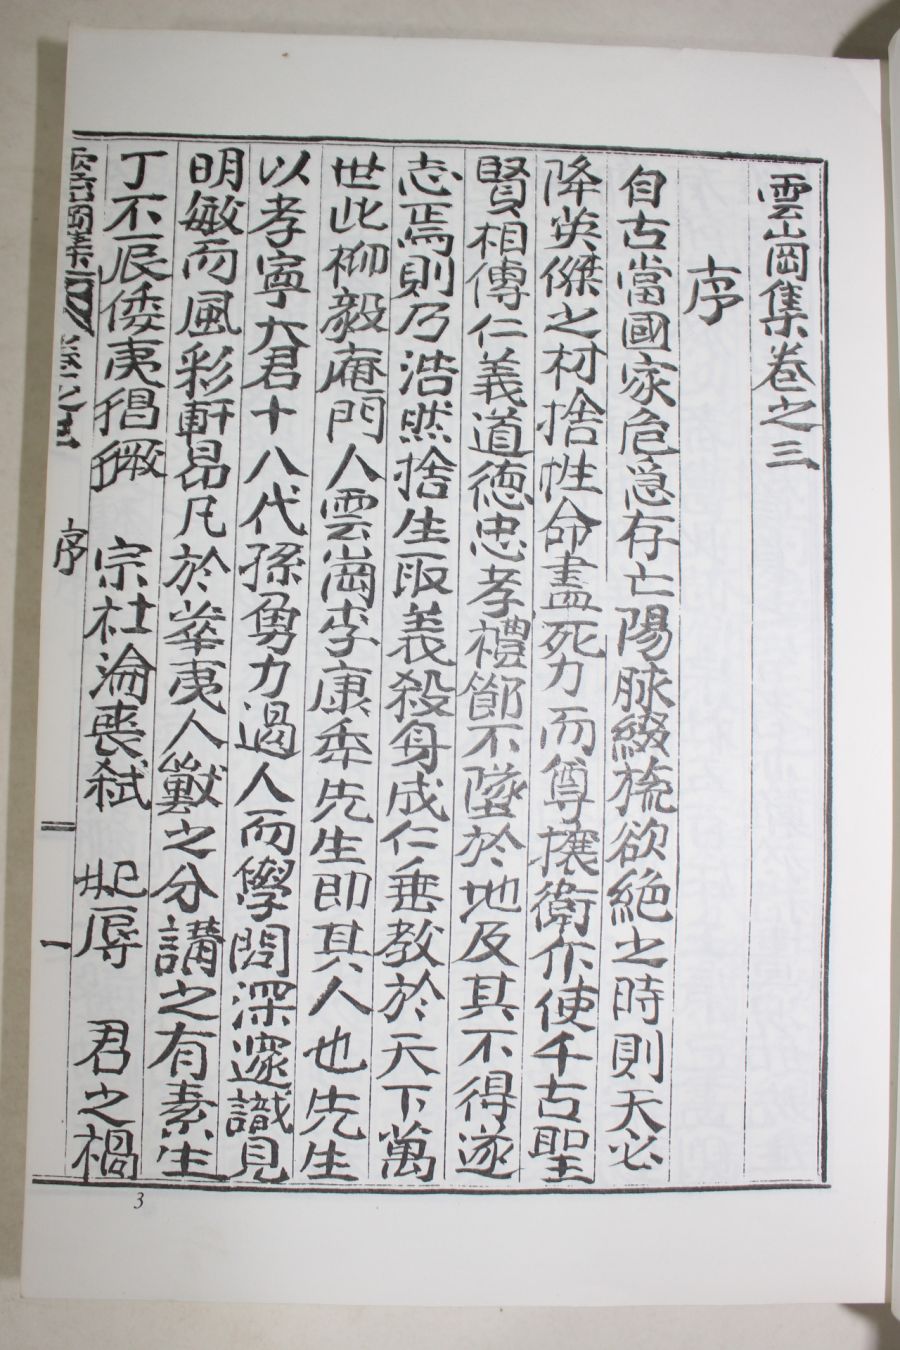 雲崗集卷之三
序
自古當國家危急存亡陽脉綴旒欲絶之時則天必
降英傑之材捨性命盡死力而尊攘衛作使千古聖
賢相傳仁義道德忠孝禮節不墜於地及其不得遂
志焉則乃浩然捨生取義殺身成仁垂教於天下萬
世此柳毅庵門人雲崗李康秊先生即其人也先生
以孝寧大君十八代孫勇力過人而學問深邃識見
明敏而風彩軒昂凡於華夷人獸之分講之有素生
丁不辰倭夷猖獗 宗社淪喪弑 妃辱 君之禍
雲崗集 卷之三 序 一
3